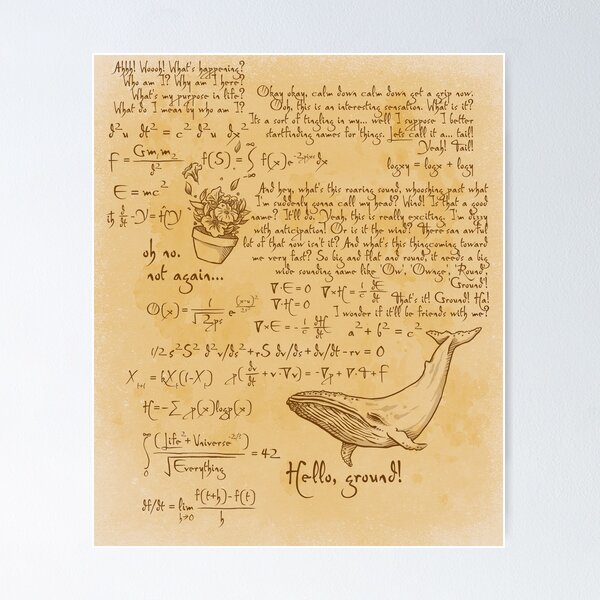 Ahhh! Woooh! What's happening?
Who am I? Why am I here?
What's my purpose in life?
What do I mean by who am I?
Okay okay, calm down calm down get a grip now.
Ooh, this is an interesting sensation. What is it?
Its a sort of tingling in my... well I suppose I better
startfinding names for things. Lets call it a... tail!
Yeah! Tail!
d²u dt² = c² d²u dx²
f = Gm₁m₂/d²
f(S) = ∫ f(x)e^-2πixs dx
logxy = logx + logy
E = mc²
iħ d/dt -Y) = Ĥ(Y
And hey, what's this roaring sound, whooshing past what
I'm suddenly gonna call my head? Wind! Is that a good
name? It'll do. Yeah, this is really exciting. I'm dizzy
with anticipation! Or is it the wind? There san awful
lot of that now isn't it? And what's this thingcoming toward
me very fast? So big and flat and round, it needs a big
wide sounding name like 'Ow', 'Ownge', 'Round',
'Ground'!
That's it! Ground! Ha!
I wonder if it'll be friends with me?
oh no.
not again...
∇·E = 0 ∇×H = 1/c dE/dt
∇·H = 0
∇×E = -1/c dH/dt
a² + b² = c²
1/2 s²S² d²v/ds² + rS dv/ds + dv/dt - rv = 0
Xₜ₊₁ = kXₜ(1-Xₜ)
H = -∑ p(x)logp(x)
(Life² + Universe^-2/3)/√Everything = 42
Hello, ground!
df/dt = lim h→0 f(t+h)-f(t)/h